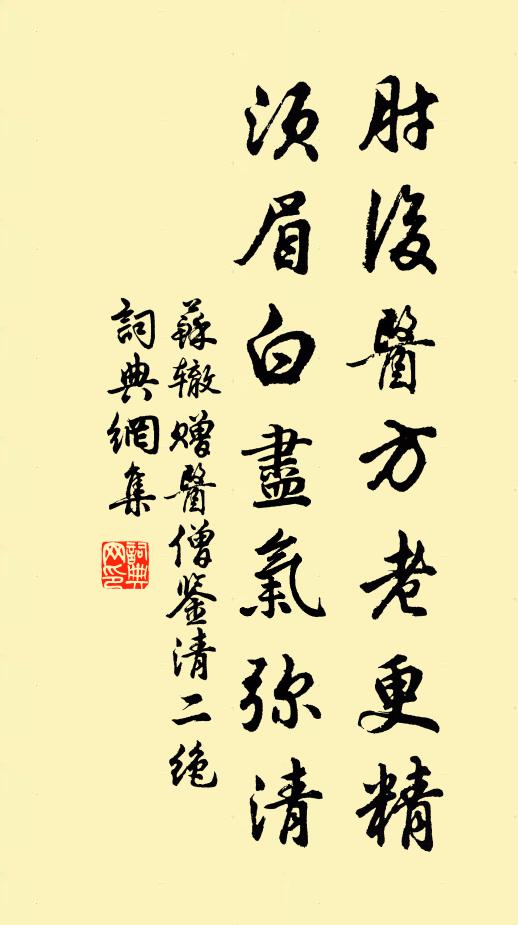 肘後醫方老更精
須眉白盡氣弥清
蘇辙赠醫僧鉴清二绝
詞典網集
詞典网印